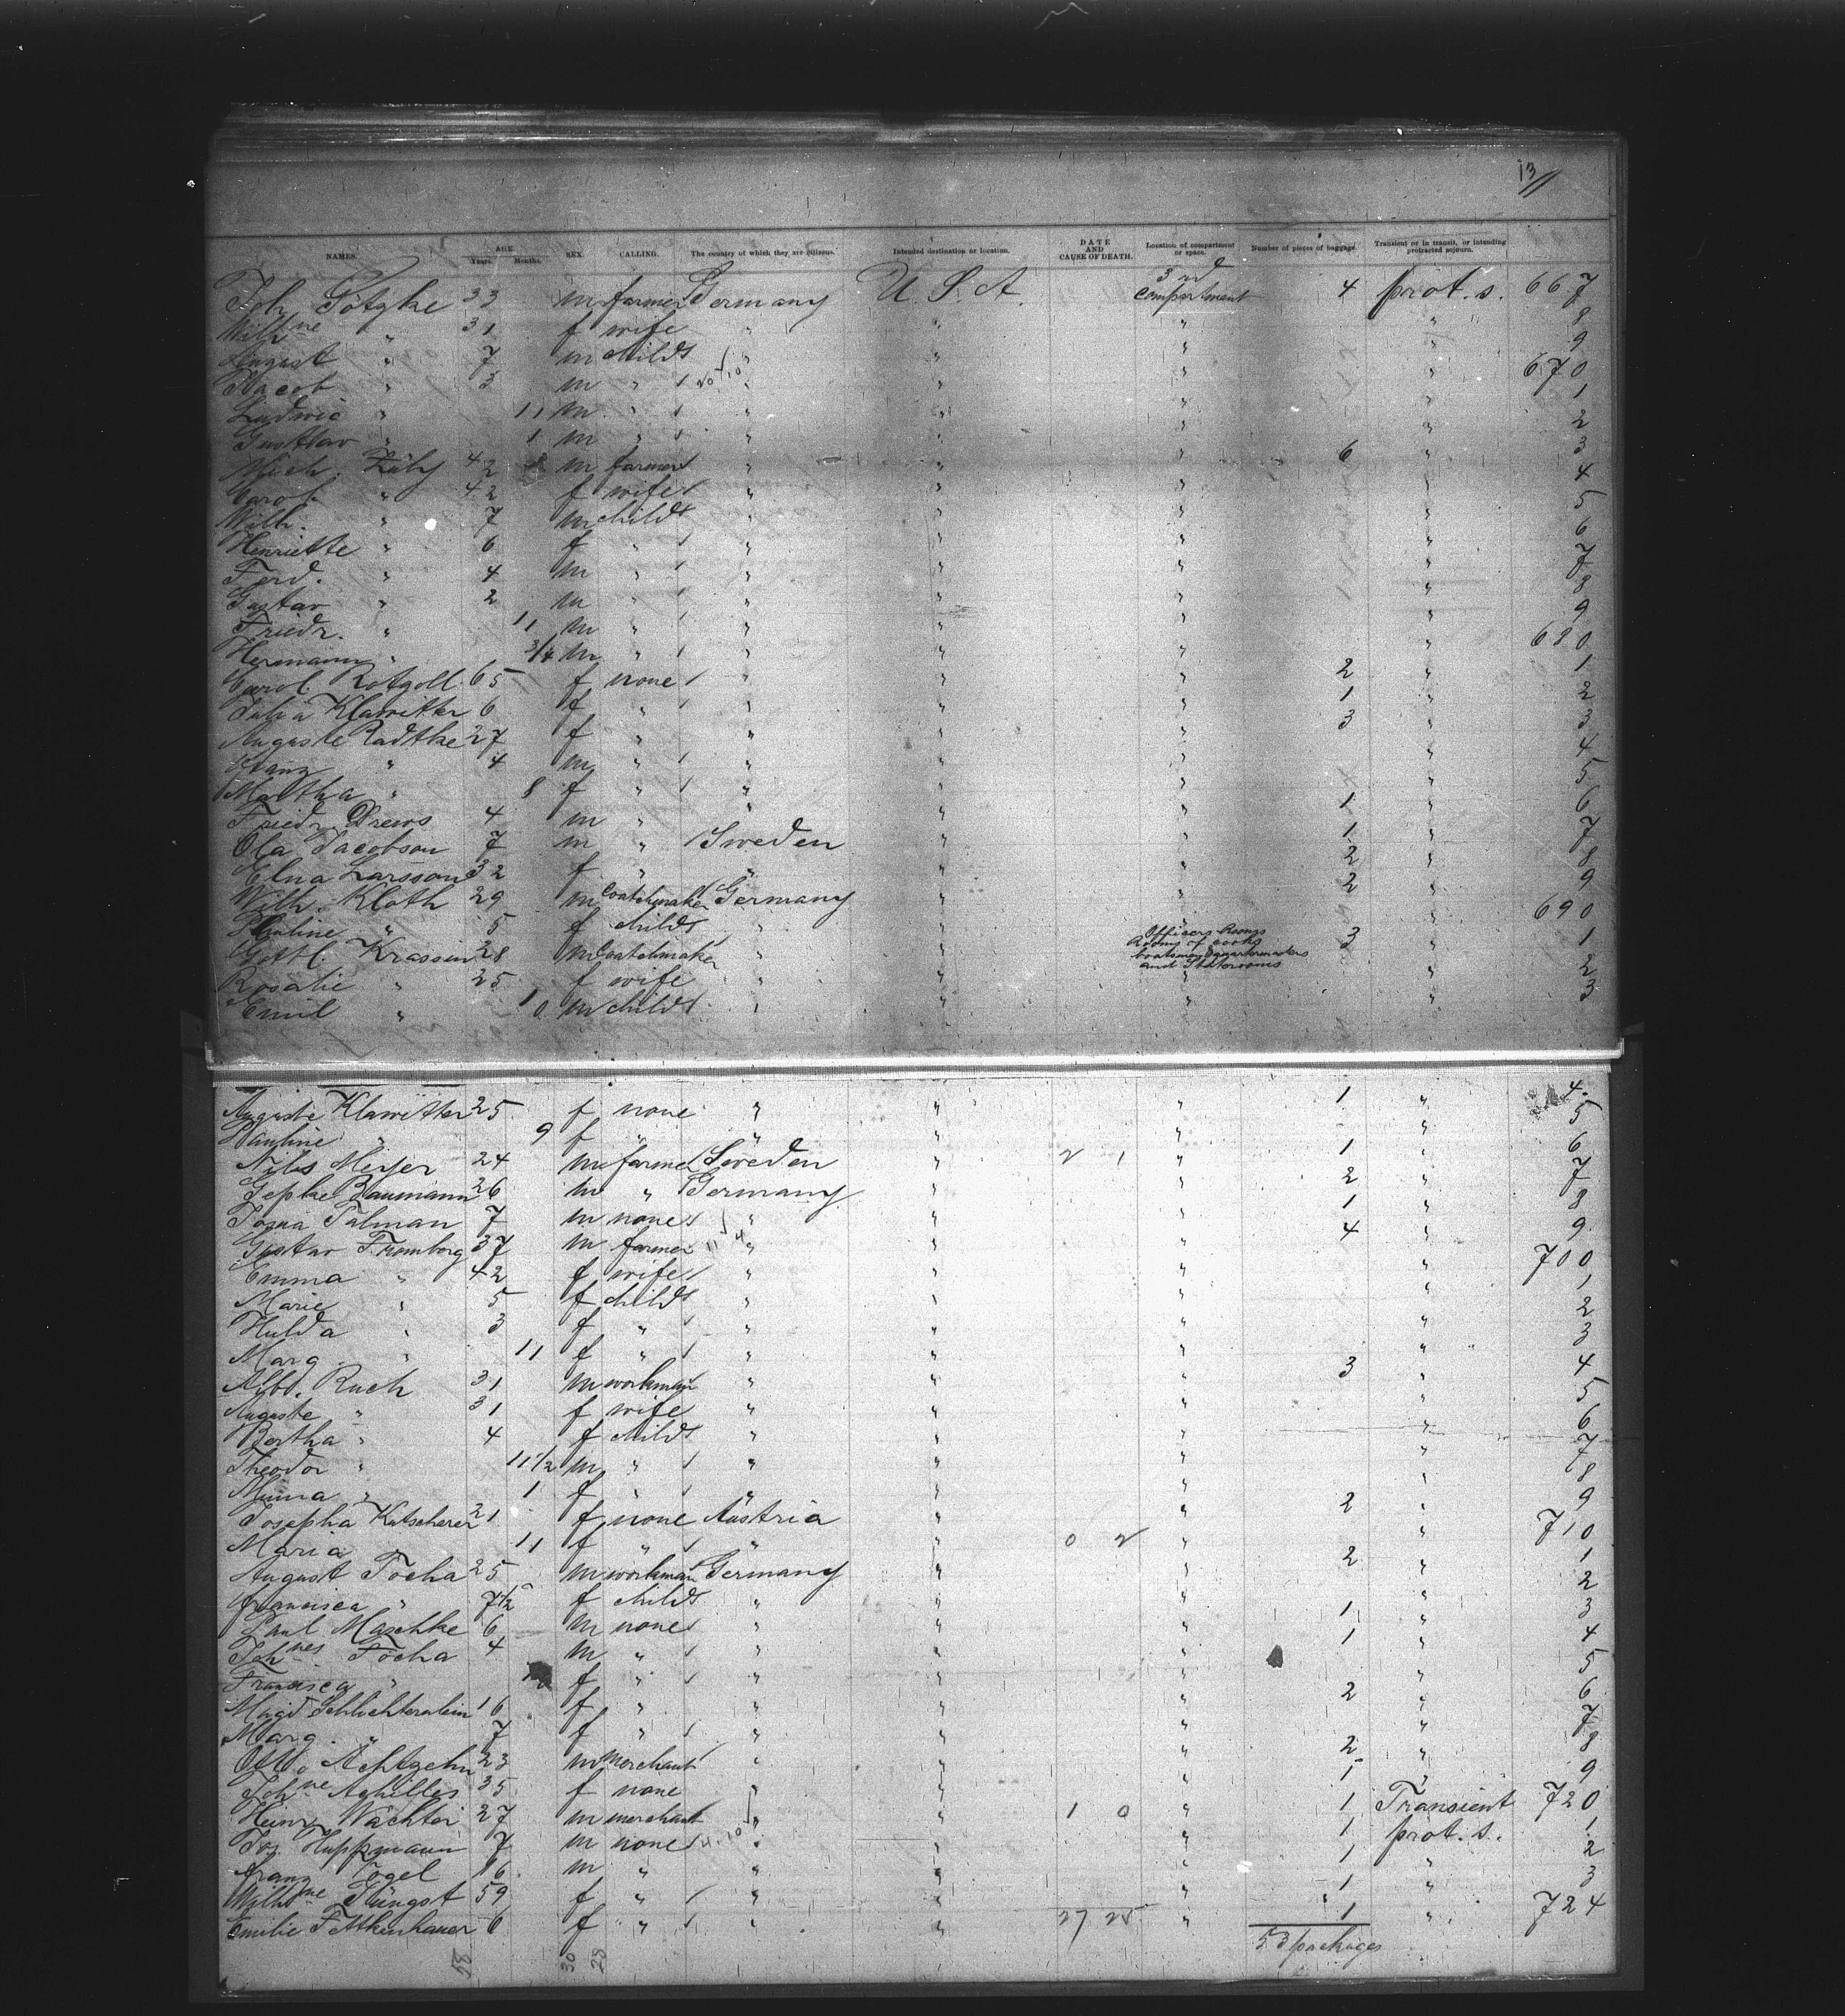 13
NAMES. AGE. Years. Months. SEX. CALLING. The country of which they are citizens. Intended destination or location. DATE AND CAUSE OF DEATH. Location of compartment or space. Number of pieces of baggage. Transient or in transit, or intending protracted sojourn.
Joh. 33 m farmer Germany U.S.A. 3rd compartment 4 prot. s. 667
Wilhne " 31 f wife " " " " 8
August " 7 m child " " " " 9
Jacob " 3 m " " " " " 670
Ludwig " 11 m " " " " " 1
Gustav " 1 m " " " " " 2
Mich. 42 m farmer " " " 6 " 3
Carol. " 42 f wife " " " " 4
Wilh. " 7 m child " " " " 5
Henriette " 6 f " " " " " 6
Ferd. " 4 m " " " " " 7
Gustav " 2 m " " " " " 8
Friedr. " 11 m " " " " " 9
Hermann " 3/4 m " " " " " 680
Carol. Rotzoll 65 f none " " " 2 " 1
Klawitter 6 f " " " " 1 " 2
Auguste Radtke 27 f " " " " 3 " 3
Franz " 4 m " " " " " 4
Martha " 8 f " " " " " 5
Friedr. Drews 4 m " " " " 1 " 6
Ola Jacobson 7 m " Sweden " " 1 " 7
Elna Larsson 32 f " " " " 2 " 8
Wilh. Kloth 29 m Coatchmaker Germany " " 2 " 9
Pauline " 5 f child " " " " 690
Gottl. Krassin 28 m Coatchmaker " " Officers Rooms Rooms of cooks boatsman Quartermasters and Staterooms 3 " 1
Rosalie " 25 f wife " " " " 2
Emil " 10 m child " " " " 3
Auguste Klawitter 25 f none " " " 1 " 4
Pauline " 9 f " " " " " 5
Nils Meyer 24 m farmer Sweden " 2 1 " 1 " 6
Gepke Baumann 26 m " Germany " " 2 " 7
Talman 7 m none " " " 1 " 8
Gustav Fromberg 37 m farmer " " " 4 " 9
Emma " 42 f wife " " " " 700
Marie " 5 f child " " " " 1
Hulda " 3 f " " " " " 2
Marg. " 11 f " " " " " 3
Albt. Ruch 31 m workman " " " 3 " 4
Auguste " 31 f wife " " " " 5
Bertha " 4 f child " " " " 6
Theodor " 11 1/2 m " " " " " 7
Minna " 1 f " " " " " 8
Josepha Kutscherer 21 f none Austria " " 2 " 9
Maria " 11 f " " " 0 2 " " 710
August Tocha 25 m workman Germany " " 2 " 1
Francisca " 7 1/2 f child " " " " 2
Paul Maschke 6 m none " " " 1 " 3
Johnes Tocha 4 m " " " " 1 " 4
Francisca " f " " " " " 5
Magd. Schlichteralein 16 f " " " " 2 " 6
Marg. " 7 f " " " " " 7
Otto Achtzehn 23 m merchant " " " 2 " 8
Johne Achilles 35 f none " " " 1 " 9
Heinr. Wächter 27 m merchant " " 1 0 " 1 Transient 720
Jos. Huppmann 7 m none " " " 1 prot. s. 1
Franz Vogel 16 m " " " " 1 " 2
Wilhne Jüngst 59 f " " " " 1 " 3
Emilie Fettkenhauer 6 f " " " 27 25 " 1 " 724
58 30 28 53 packages